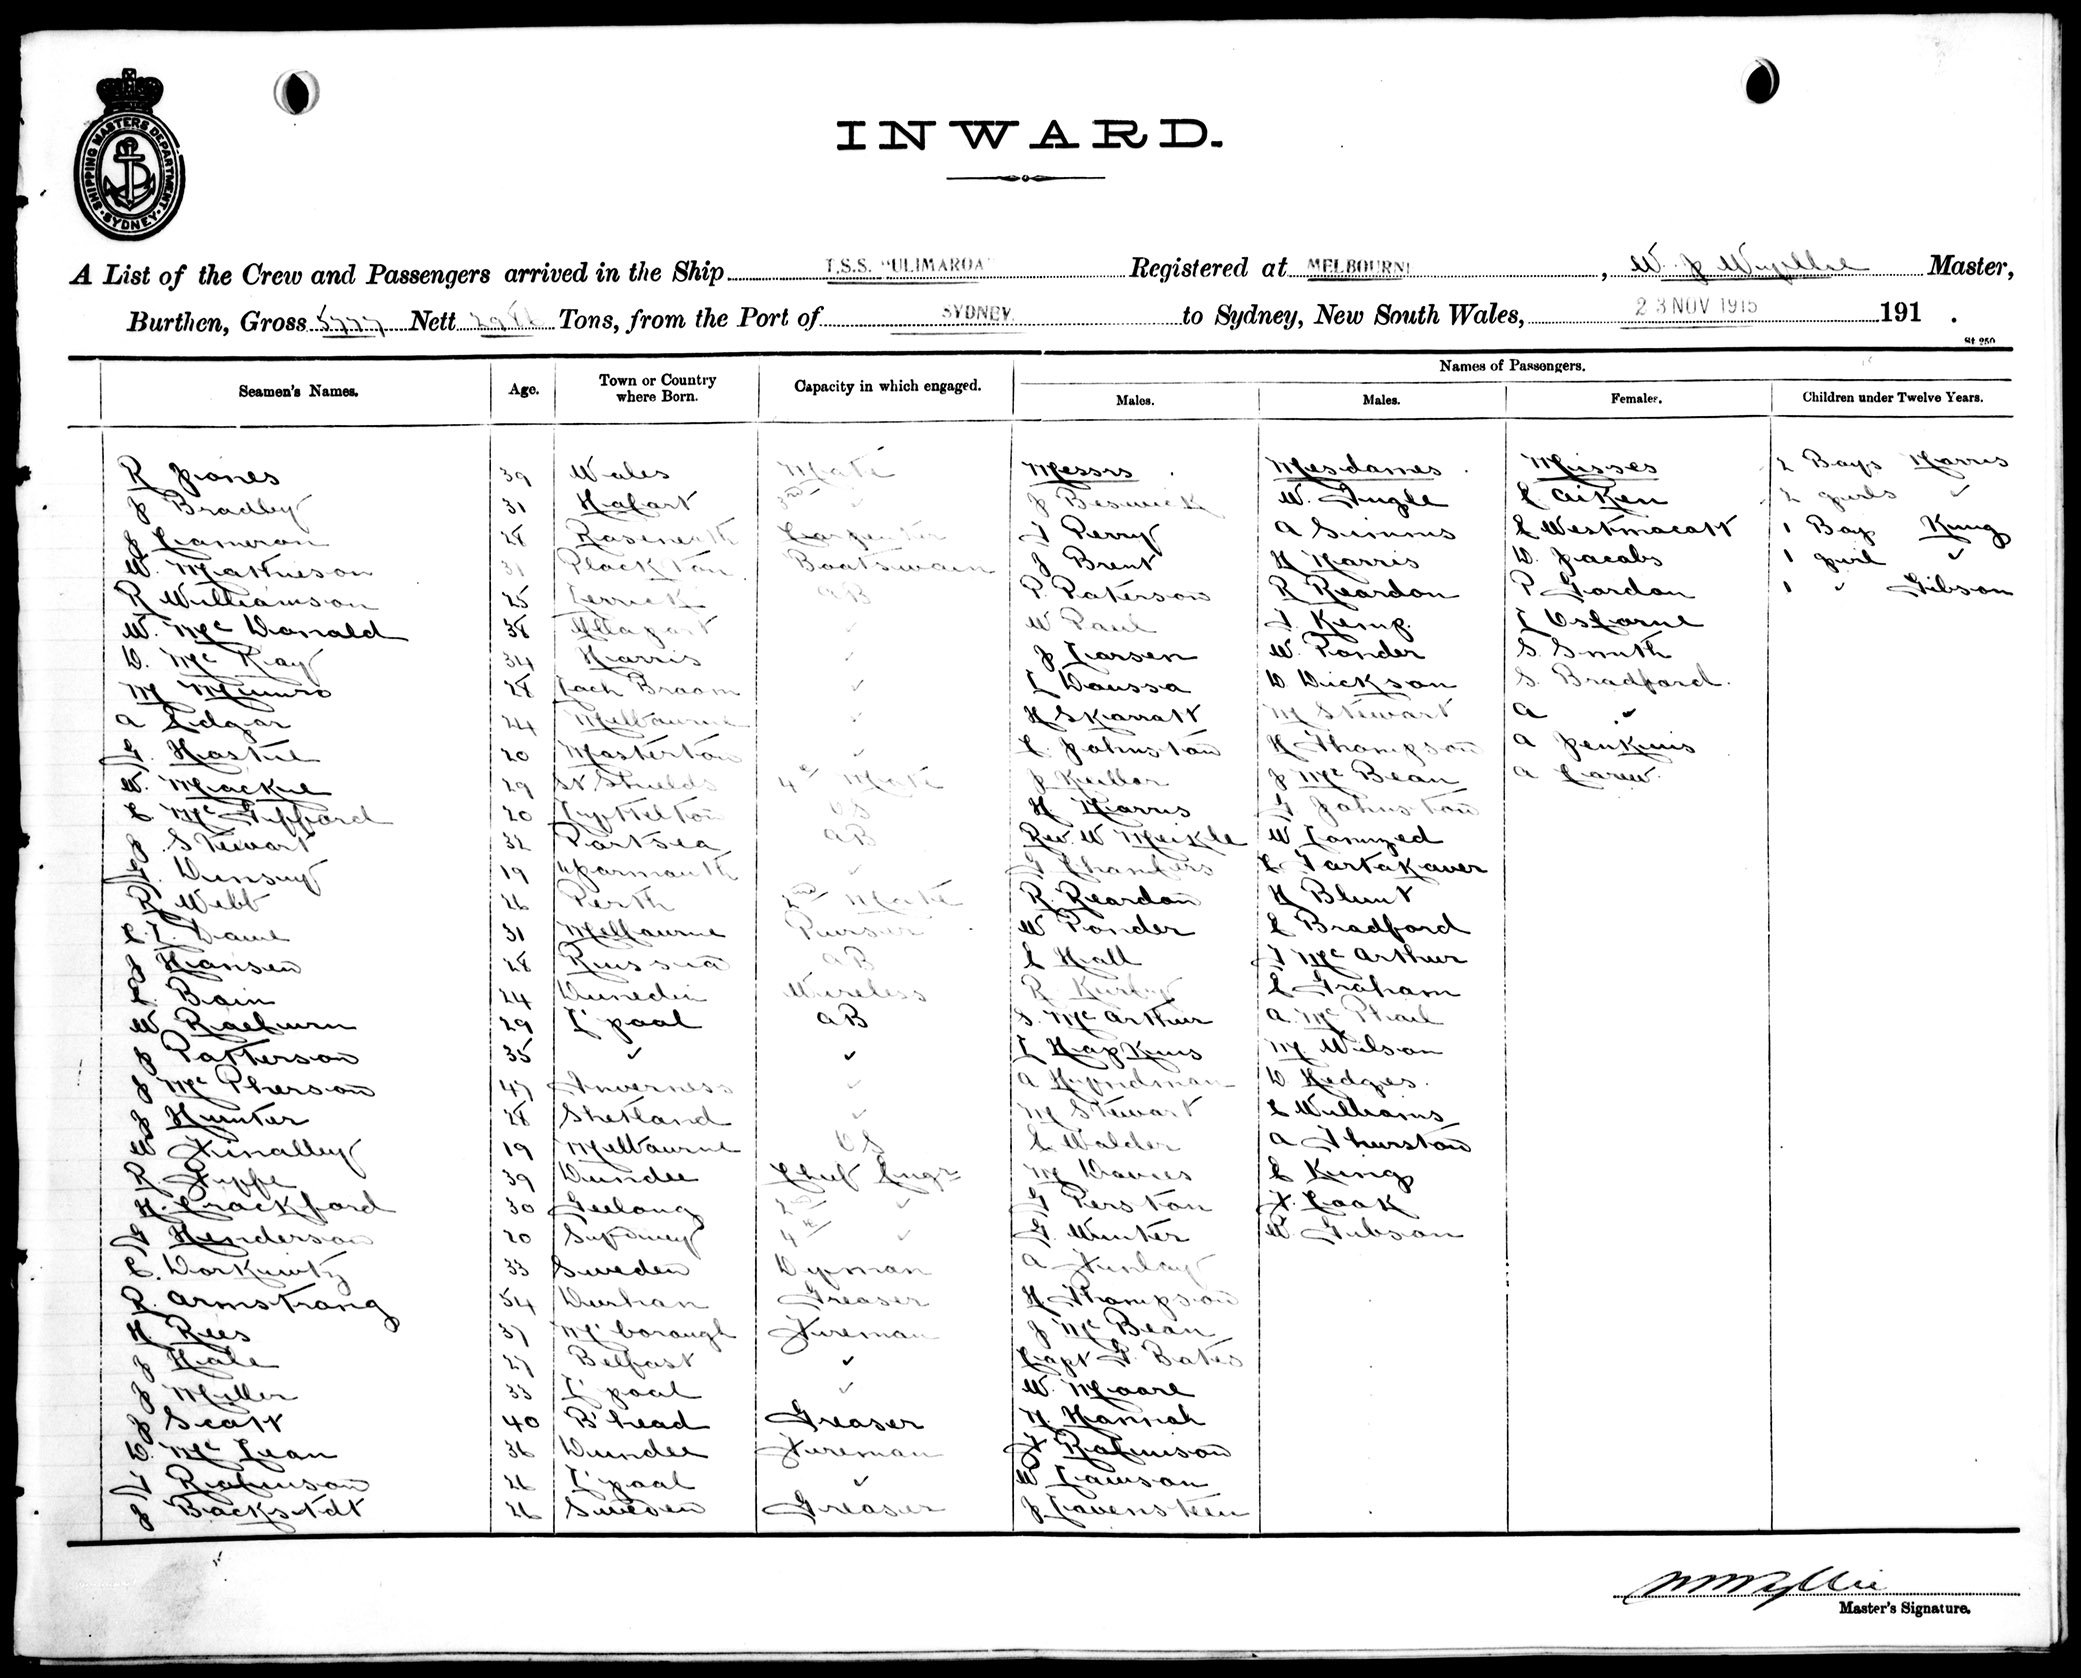 SHIPPING MASTERS DEPARTMENT
SYDNEY
INWARD.
A List of the Crew and Passengers arrived in the Ship T.S.S. "ULIMAROA" Registered at MELBOURNE, W. J Wyllie Master,
Burthen, Gross 5777 Nett Tons, from the Port of SYDNEY. to Sydney, New South Wales, 23 NOV 1915 191 .
St 250
Names of Passengers.
Seamen's Names. Age. Town or Country where Born. Capacity in which engaged. Males. Males. Females. Children under Twelve Years.
R Jones 39 Wales Mate Messrs Mesdames Misses 2 Boys Harris
J Bradley 31 Hobart 3rd " J Beswick W. Ingle E Aiken 2 girls "
J Cameron 28 Roseneath Carpenter T Perry A Simms E Westmacott 1 Boy King
W. Mathieson 31 Plockton Boatswain J Brent H Harris D. Jacobs 1 girl "
R Williamson 25 Lerrick AB P. Paterson R Reardon P Gordon 1 " Gibson
W. McDonald 38 Ullapool " W Paul T. Kemp. L Osborne
D. McKay 34 Harris " J Larsen W. Ponder S. Smith
M Munro 28 Loch Broom " L Doussa D Dickson S. Bradford
A Edgar 24 Melbourne " H Skarratt M Stewart A "
G. Hastie 20 Masterton " C. Johnston H Thompson A Jenkins
W. Mackie 29 St Shields 4th Mate J Keillor J McBean A Carew
C McGifford 20 Lyttelton OS H. Harris G Johnston
J. Stewart 32 Portsea AB Rev. W Meikle W
G. Dunsey 19 Yarmouth " G Chambers C Tartakaver
R Webb 26 Perth 2nd Mate R. Reardon H Blunt
31 Melbourne Purser W Ponder E Bradford
J Hansen 28 Russia AB E Hall T McArthur
C. Bain 24 Dunedin Wireless R. Kirby E Graham
W Raeburn 29 L'pool AB S. McArthur A. McPhail
J Patterson 35 " " L Hopkins M. Wilson
J McPherson 47 Inverness " A Hyndman D Hedges.
J Hunter 28 Shetland " M Stewart E Williams
W Finalley 19 Melbourne OS E Walder A Thurston
R. 39 Dundee Chief Engr M Davies E King
H. Crackford 30 Geelong 2nd " G Perston F. Cook
G Henderson 20 Sydney 4th " G. Winter W. Gibson
C. 33 Sweden Dyman A Finlay
R. Armstrong 54 Durhan Greaser H Thompson
H Rees 37 M'borough Fireman J McBean
J Hale 27 Belfast " Capt G. Bates
J Miller 33 L'pool " W. Moore
J Scott 40 B'head Greaser N. Hannah
D. McLean 36 Dundee Fireman F Robinson
T Robinson 26 L'pool " W Lawson
J Backstdt 26 Sweden Greaser J Lovensteen
W J Wyllie
Master's Signature.